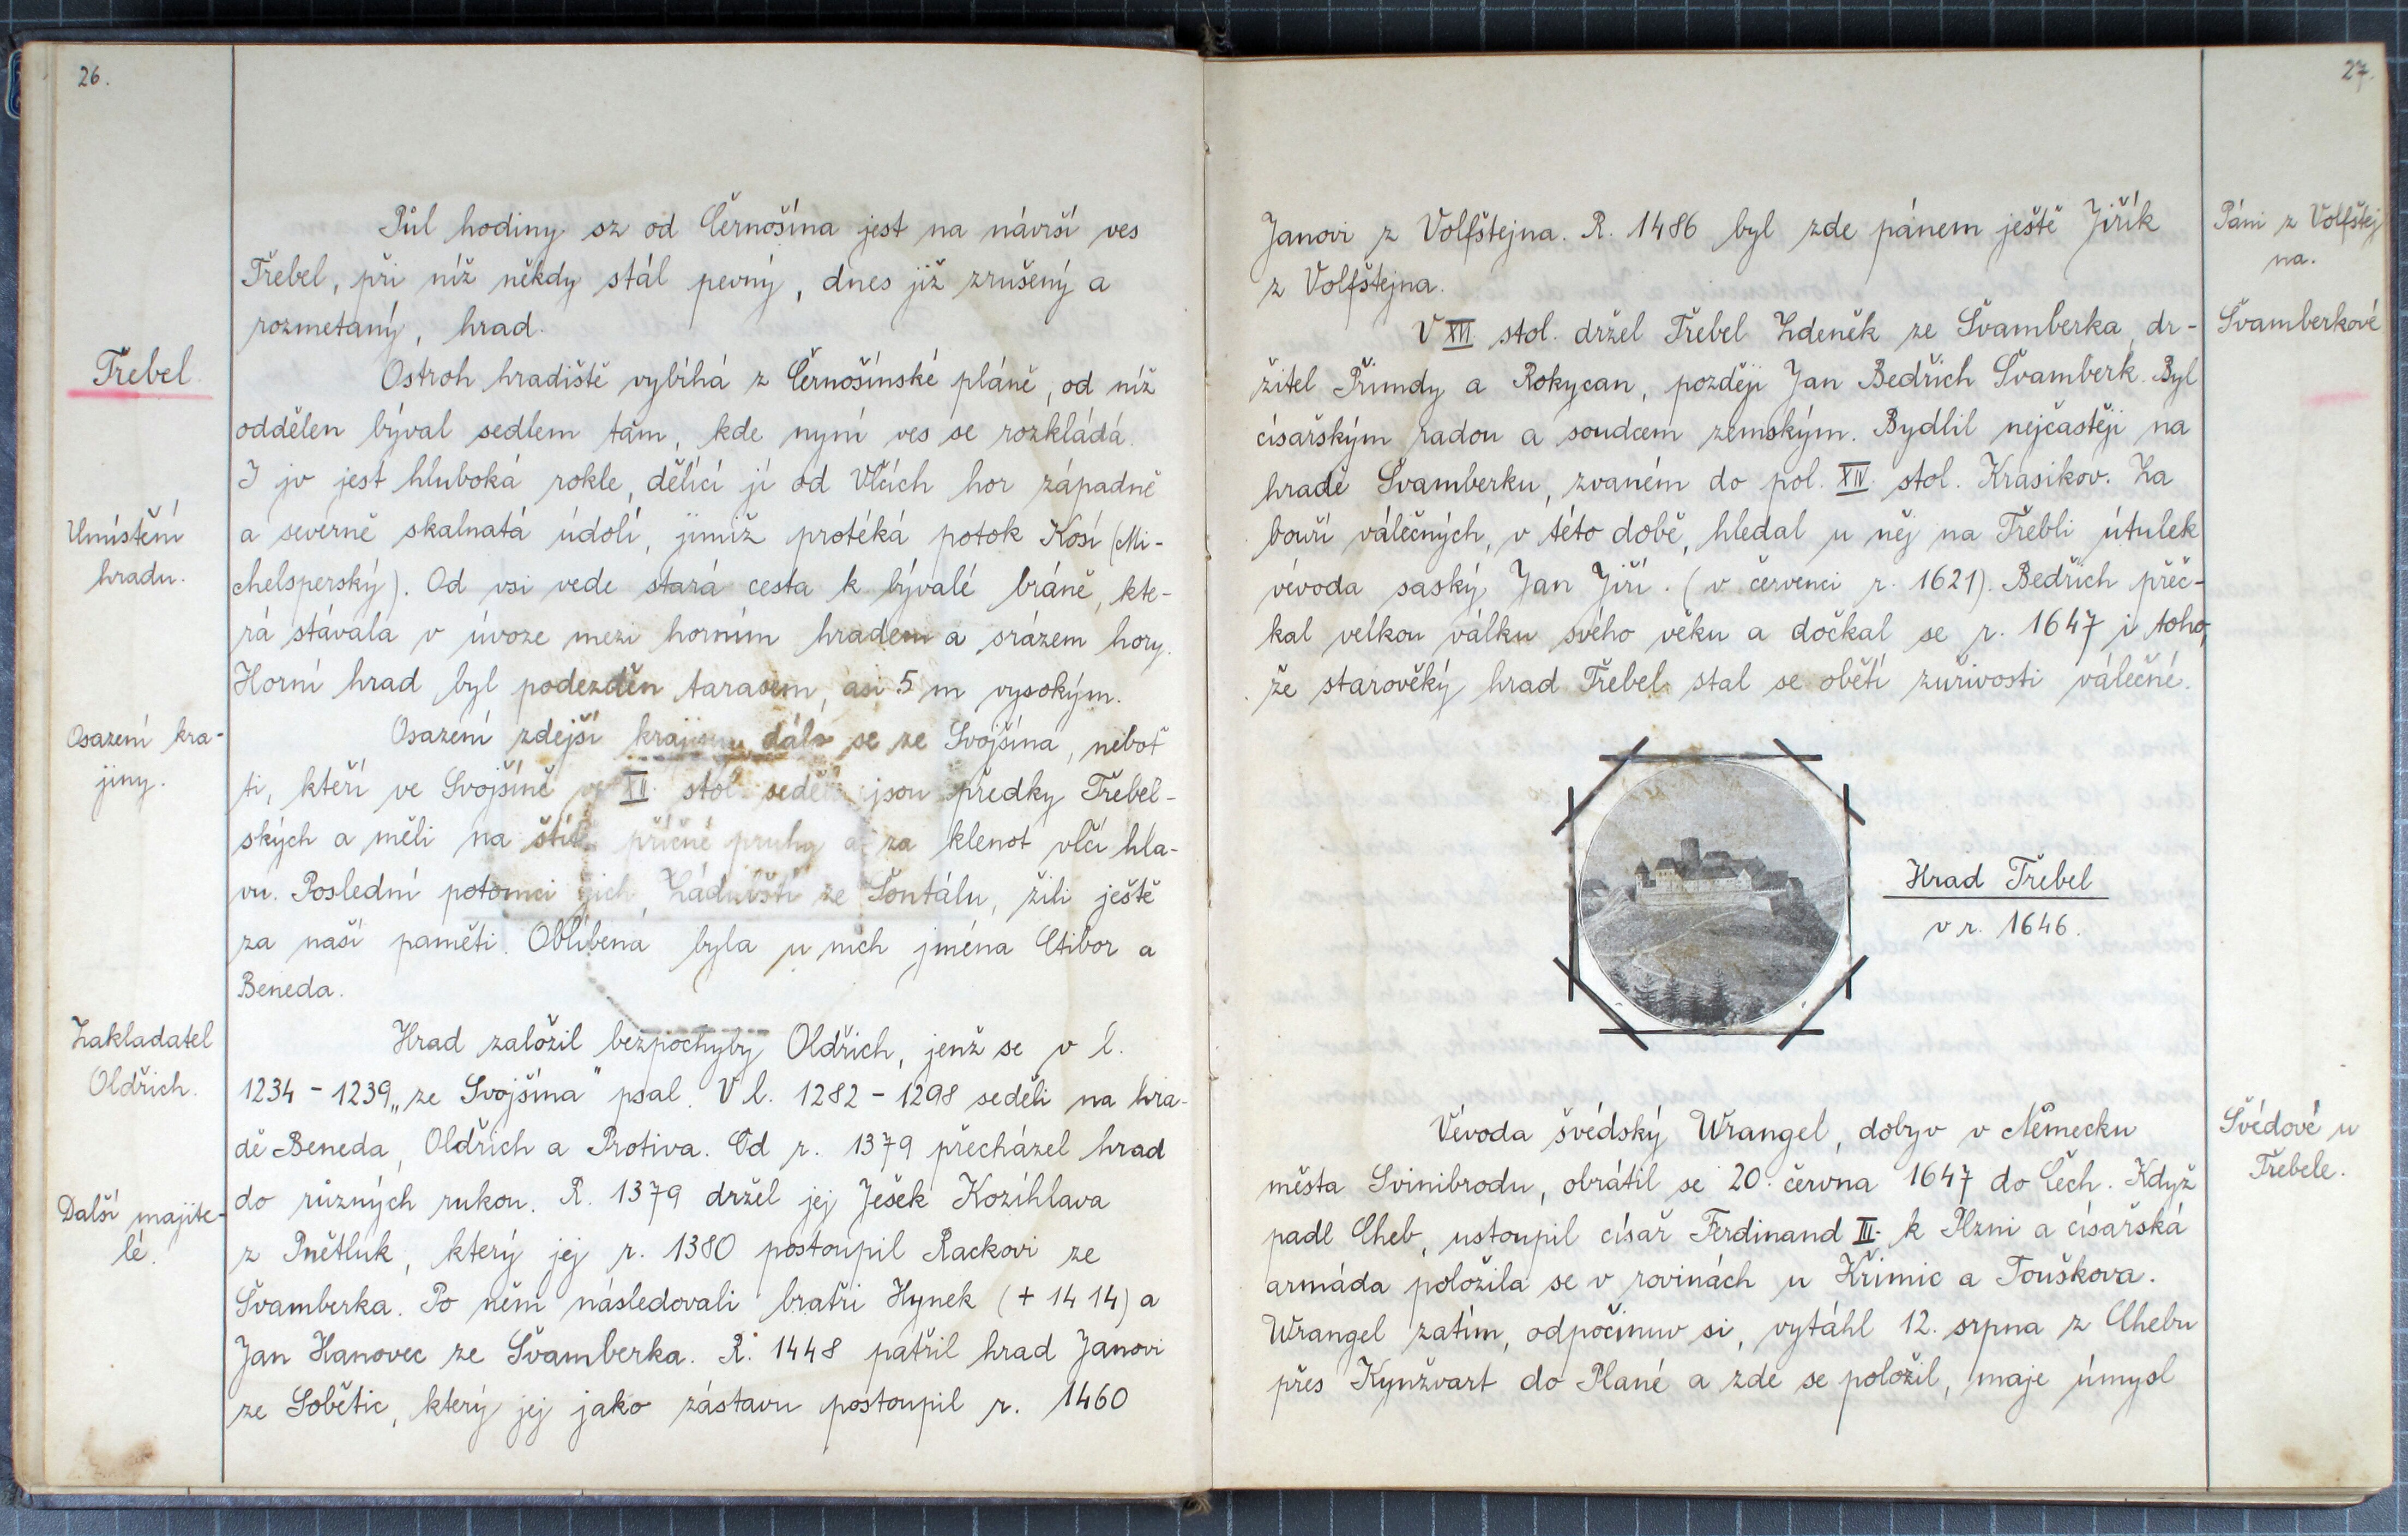 26.
Půl hodiny sz od Černošína jest na návrší ves
Třebel, při níž někdy stál pevný, dnes již zrušený a
rozmetaný, hrad.
Třebel.
Ostroh hradiště vybíhá z Černošínské pláně, od níž
oddělen býval sedlem tam, kde nyní ves se rozkládá.
I jv jest hluboká rokle, dělící ji od Vlčích hor západně
Umístění
hradu.
a severně skalnatá údolí, jimiž protéká potok Kosí (Mi-
chelsperský). Od vsi vede stará cesta k bývalé bráně, kte-
rá stávala v úvoze mezi horním hradem a srázem hory.
Horní hrad byl podezděn tarasem, asi 5 m vysokým.
Osazení kra-
jiny.
Osazení zdejší krajiny dálo se ze Svojšína, neboť
ti, kteří ve Svojšíně v XII. stol. seděli jsou předky Třebel-
ských a měli na štítě příčné pruhy a za klenot vlčí hla-
vu. Poslední potomci jich, Žádubští ze Šontálu, žili ještě
za naší paměti. Oblíbená byla u nich jména Ctibor a
Beneda.
Zakladatel
Oldřich.
Hrad založil bezpochyby Oldřich, jenž se v l.
1234 - 1239 „ze Svojšína" psal. V l. 1282 - 1298 seděli na hra-
dě Beneda, Oldřich a Protiva. Od r. 1379 přecházel hrad
Další majite-
lé.
do různých rukou. R. 1379 držel jej Ješek Kozíhlava
z Pnětluk, který jej r. 1380 postoupil Rackovi ze
Švamberka. Po něm následovali bratři Hynek (+ 1414) a
Jan Hanovec ze Švamberka. R. 1448 patřil hrad Janovi
ze Sobětic, který jej jako zástavu postoupil r. 1460
27.
Janovi z Volfštejna. R. 1486 byl zde pánem ještě Jiřík
z Volfštejna.
Páni z Volfštej
na.
V XVI. stol. držel Třebel Zdeněk ze Švamberka, dr-
Švamberkové
žitel Přimdy a Rokycan, později Jan Bedřich Švamberk. Byl
císařským radou a soudcem zemským. Bydlil nejčastěji na
hradě Švamberku, zvaném do pol. XIV. stol. Krasikov. Za
bouří válečných, v této době, hledal u něj na Třebli útulek
vévoda saský Jan Jiří. (v červenci r. 1621). Bedřich přeč-
kal velkou válku svého věku a dočkal se r. 1647 i toho,
že starověký hrad Třebel stal se obětí zuřivosti válečné.
Hrad Třebel
v r. 1646.
Vévoda švédský Wrangel, dobyv v Německu
Švédové u
Třebele.
města Svinibrodu, obrátil se 20. června 1647 do Čech. Když
padl Cheb, ustoupil císař Ferdinand III. k Plzni a císařská
armáda položila se v rovinách u Křimic a Touškova.
Wrangel zatím, odpočinuv si, vytáhl 12. srpna z Chebu
přes Kynžvart do Plané a zde se položil, maje úmysl